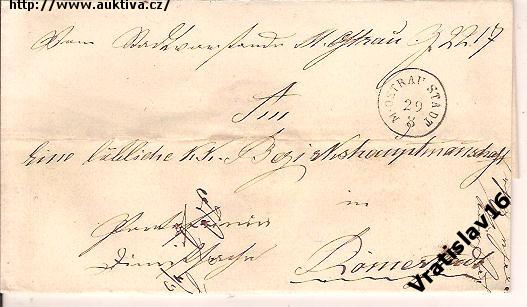 http://www.auktiva.cz/
Vom Stadtvorstande M. Ostrau Z 2217
M. OSTRAU STADT
29
3
An
Eine löbliche k.k. Bezirkshauptmannschaft
in
Dienstsache
Römerstadt
Vratislav16